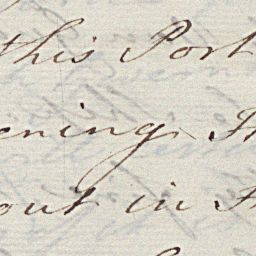 this Port
ening
out in